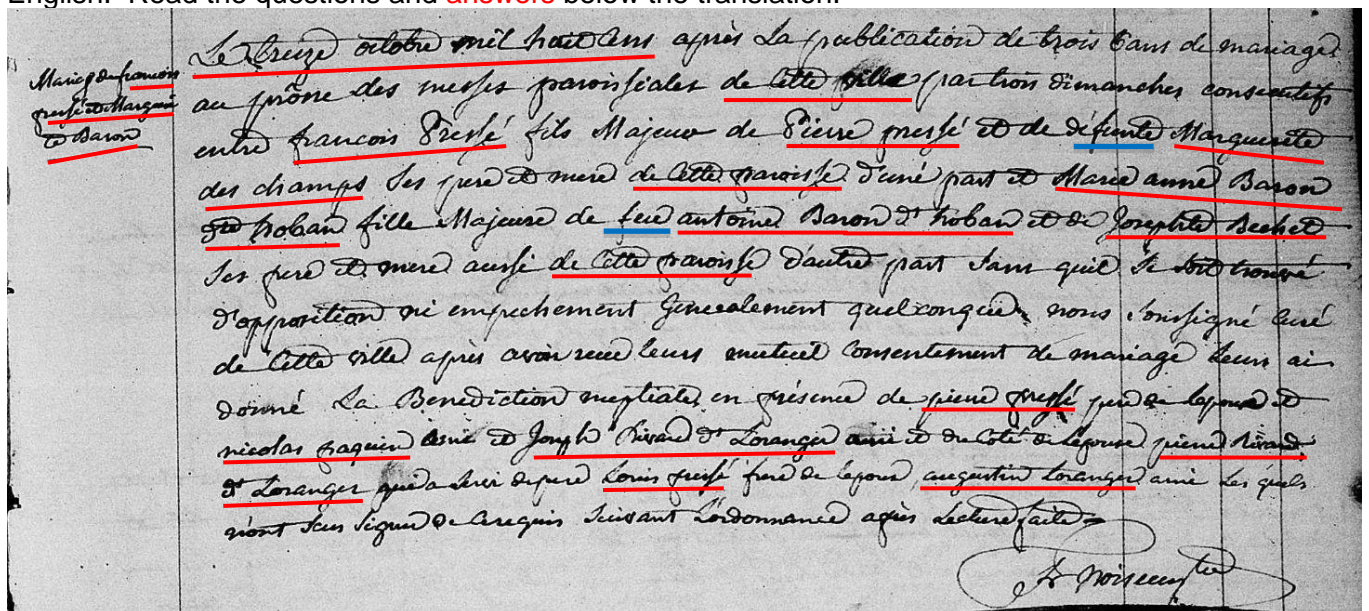 English. Read the questions and answers below the translation.
Le treize octobre mil huit Cens après La publication de trois bans de mariages
Mariage de francois
au prône des messes paroissiales de Cette ville par trois dimanches consecutifs
pressé et Margueri
te Baron
entre francois Pressé fils Majeur de Pierre pressé et de défeunte Marguerite
des champs Ses pere et mere de Cette paroisse d'une part et Marie anne Baron
dt hoban fille Majeure de feue antoine Baron dt hoban et de Josephte Bechet
Ses pere et mere aussi de Cette paroisse d'autre part Sans quil Se soit trouvé
d'opposition ni empechement Generalement quelconque nous Soussigné Curé
de Cette ville après avoir recu leurs mutuel Consentement de mariage Leurs ai
donné La Benediction nuptiale en présence de pierre pressé pere de lepoux et
nicolas paquin amie et Joseph Rivard dt Loranger ami et du Coté de Lepouse pierre Rivard
dt Loranger qui a Servi de pere Louis pressé frere de lepoux, augustin Loranger amie Les quels
n'ont Scus Signer de Ce requis Suivant Lordonnance après Lecture faite
ptre